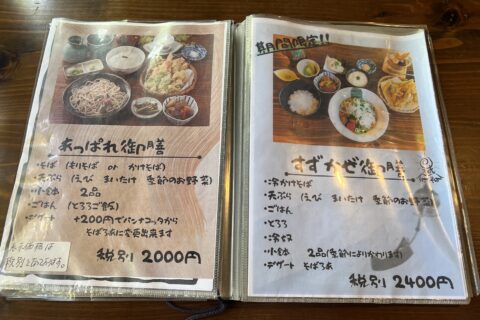 あっぱれ御膳
・そば (もりそば or かけそば)
・天ぷら (えび まいたけ 季節のお野菜)
・小鉢 2品
・ごはん (とろろご飯)
・デザート +200円でパンナコッタから
そばろあに変更出来ます
税別 2000円
表示価格は
税別となっております。
期間限定!!
すずかぜ御膳
・冷かけそば
・天ぷら (えび まいたけ 季節のお野菜)
・ごはん
・とろろ
・冷奴
・小鉢 2品(季節によりかわります)
・デザート そばろあ
税別 2400円